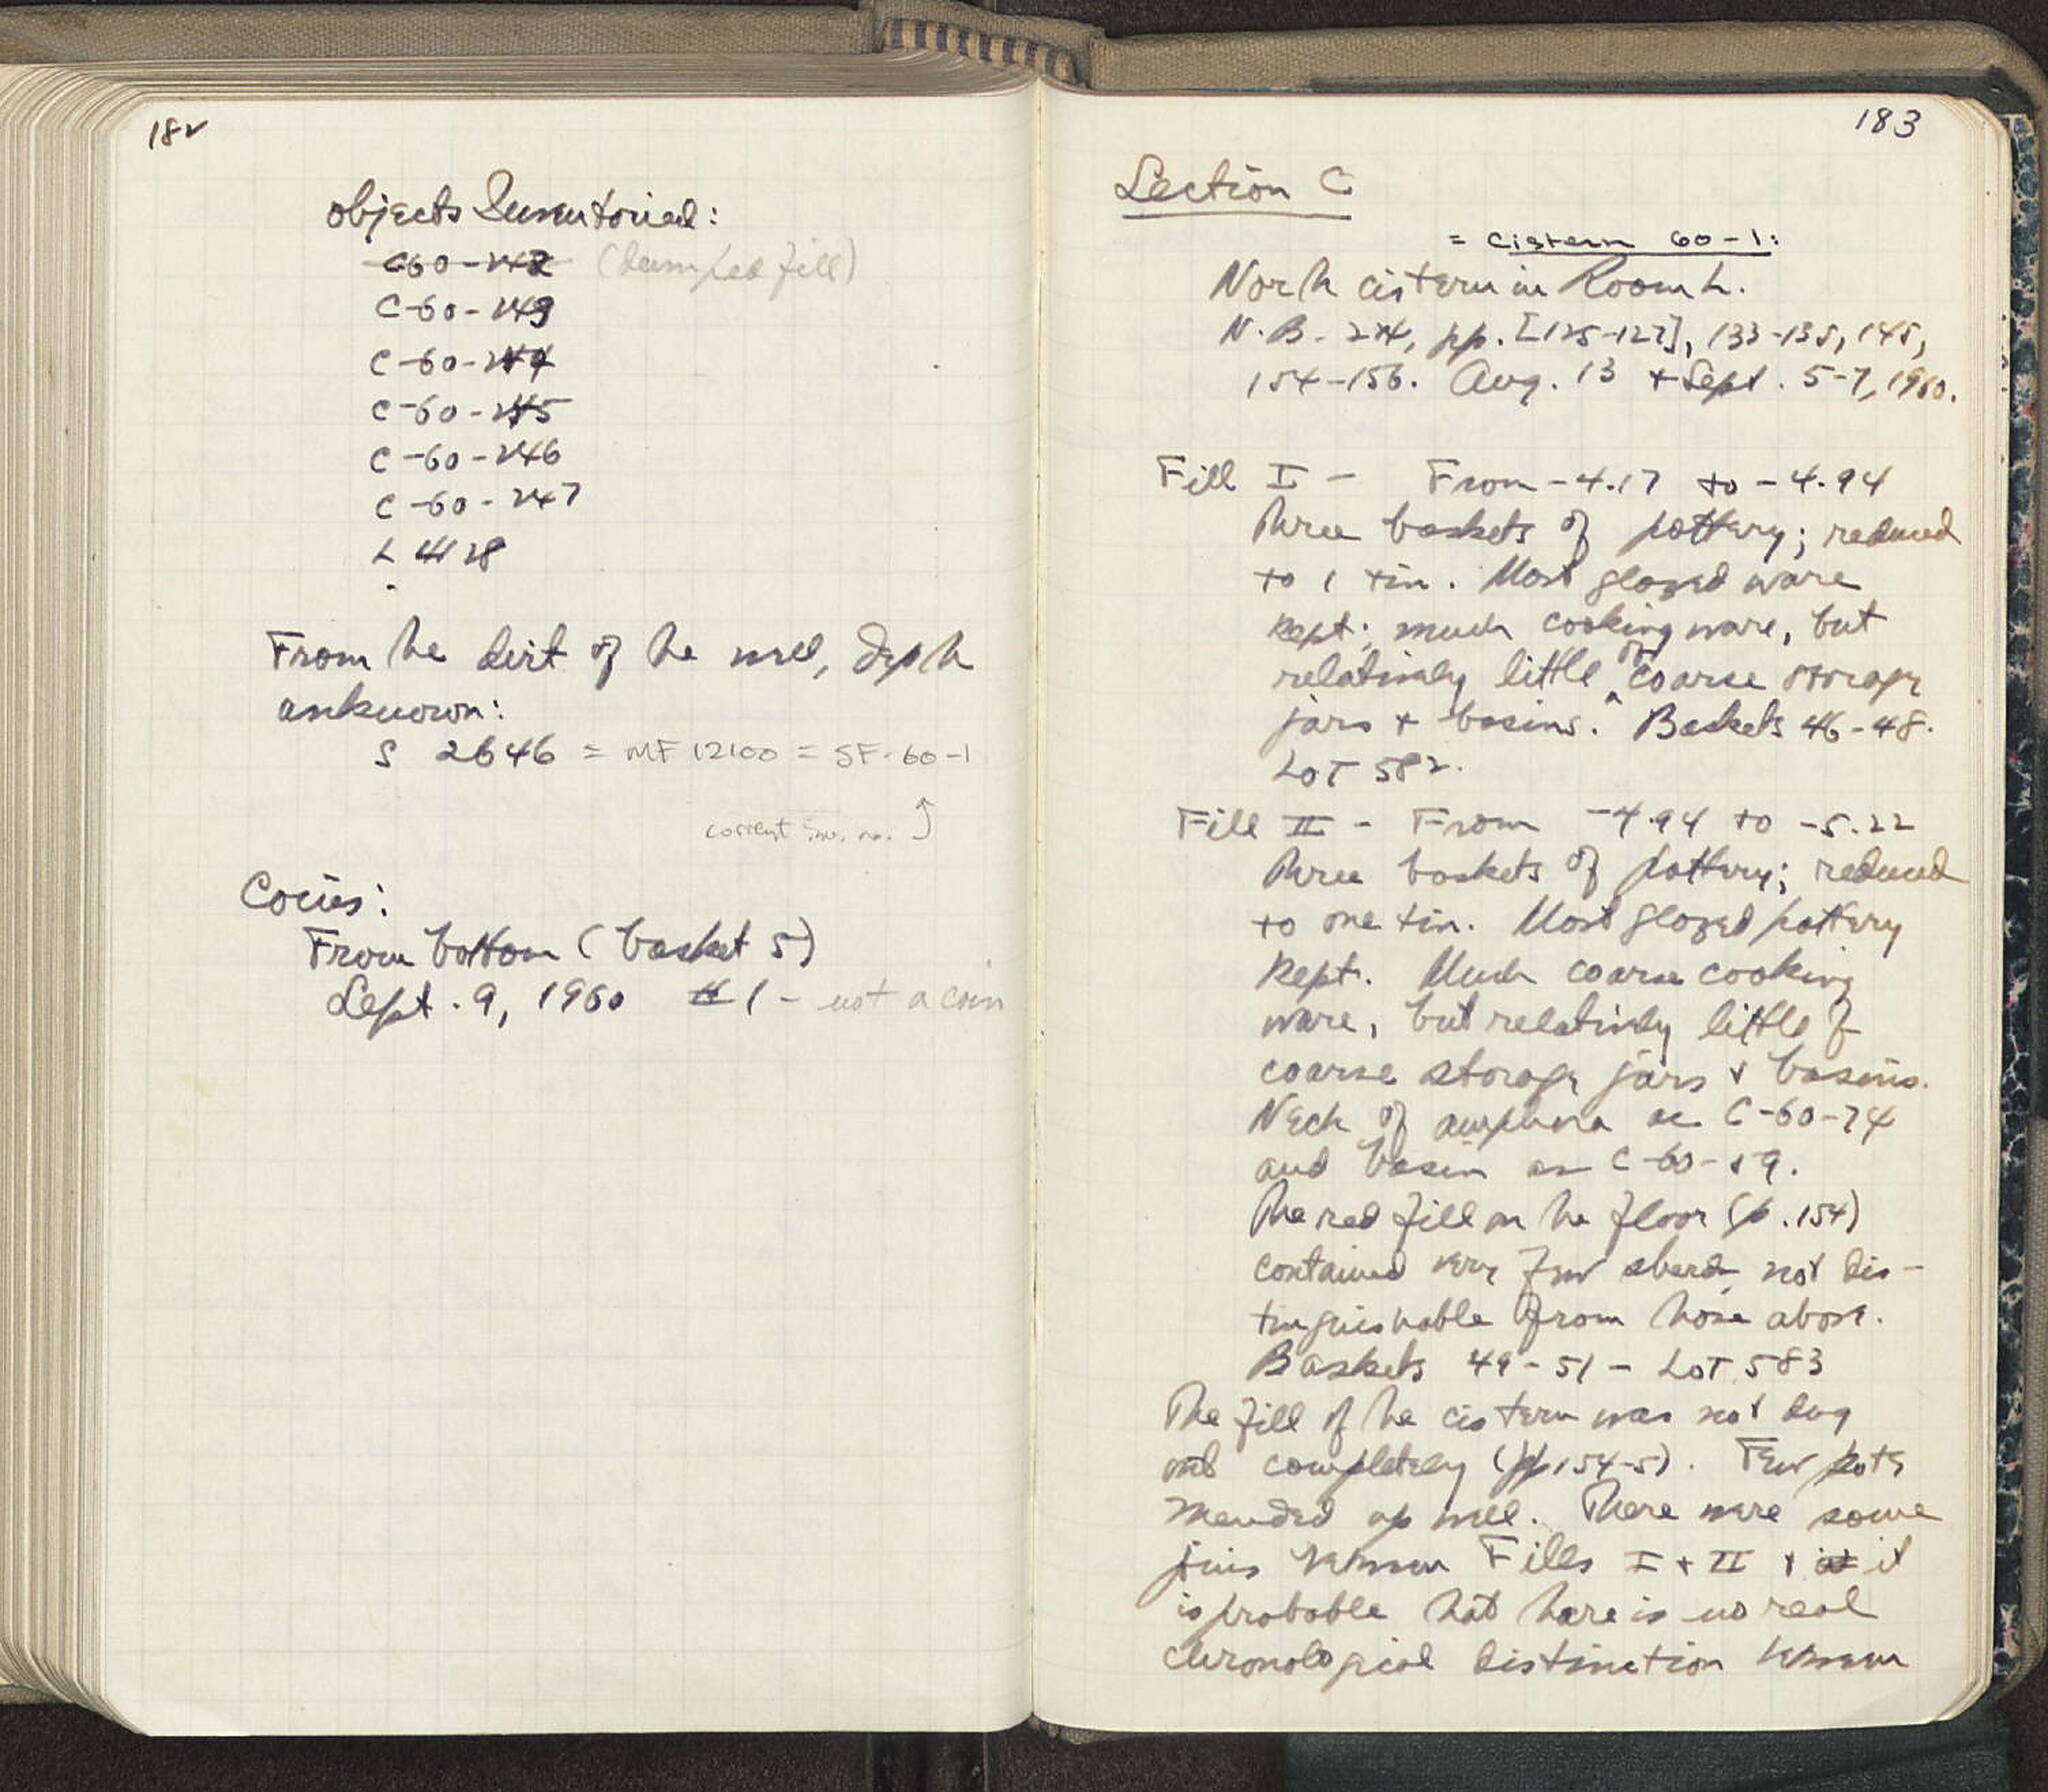 182
Objects Inventoried:
C-60-242 (dumped fill)
C-60-243
C-60-244
C-60-245
C-60-246
C-60-247
L 4128
From the dirt of the well, depth
unknown:
S 2646 = MF 12100 = SF-60-1
correct inv. no.
Coins:
From bottom (basket 5)
Sept. 9, 1960 #1 - not a coin
183
Section C
= Cistern 60-1:
North cistern in Room L.
N.B. 224, pp. [125-127], 133-135, 145,
154-156. Aug. 13 + Sept. 5-7, 1960.
Fill I - From -4.17 to -4.94
Three baskets of pottery; reduced
to 1 tin. Most glazed ware
kept; much cooking ware, but
relatively little of coarse storage
jars + basins. Baskets 46-48.
Lot 582.
Fill II - From -4.94 to -5.22
Three baskets of pottery; reduced
to one tin. Most glazed pottery
kept. Much coarse cooking
ware, but relatively little of
coarse storage jars + basins.
Neck of amphora as C-60-74
and basin as C-60-
The red fill on the floor (p. 154)
contained very few sherds, not dis-
tinguishable from those above.
Baskets 49-51 - Lot 583
The fill of the cistern was not dug
out completely (pp 154-5). Few pots
mended up well. There were some
joins between Fills I + II + it
is probable that there is no real
chronological distinction between